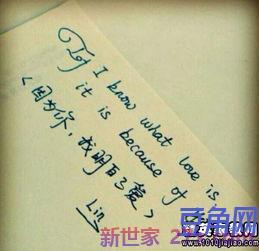 If I know what love is,
it is because of
《因为你，我明白了爱》
Lin
新世家
可角网
www.1010jiajiao.com